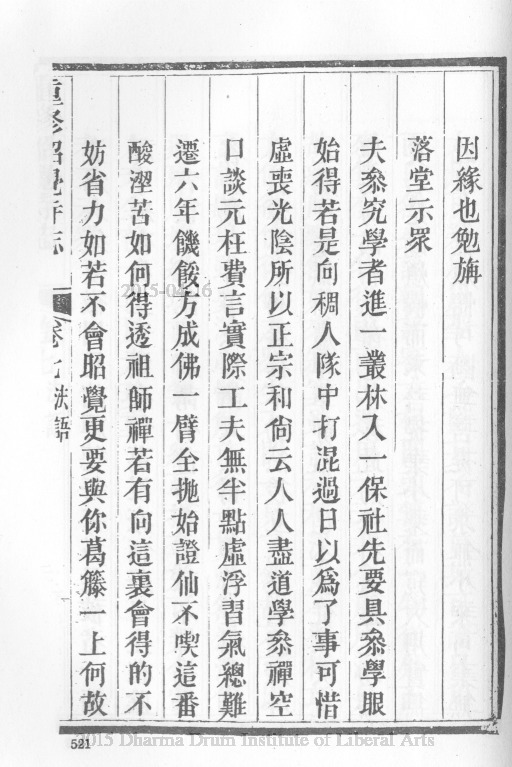 因緣也勉旃
落堂示眾
夫叅究學者進一叢林入一保社先要具叅學眼
始得若是向稠人隊中打混過日以爲了事可惜
虛喪光陰所以正宗和尙云人人盡道學叅禪空
口談元枉費言實際工夫無半點虛浮習氣總難
遷六年饑餒方成佛一臂全拋始證仙不喫這番
酸澀苦如何得透祖師禪若有向這裏會得的不
妨省力如若不會昭覺更要與你葛籐一上何故
重修昭覺寺志
卷七 法語
521
2015 Dharma Drum Institute of Liberal Arts